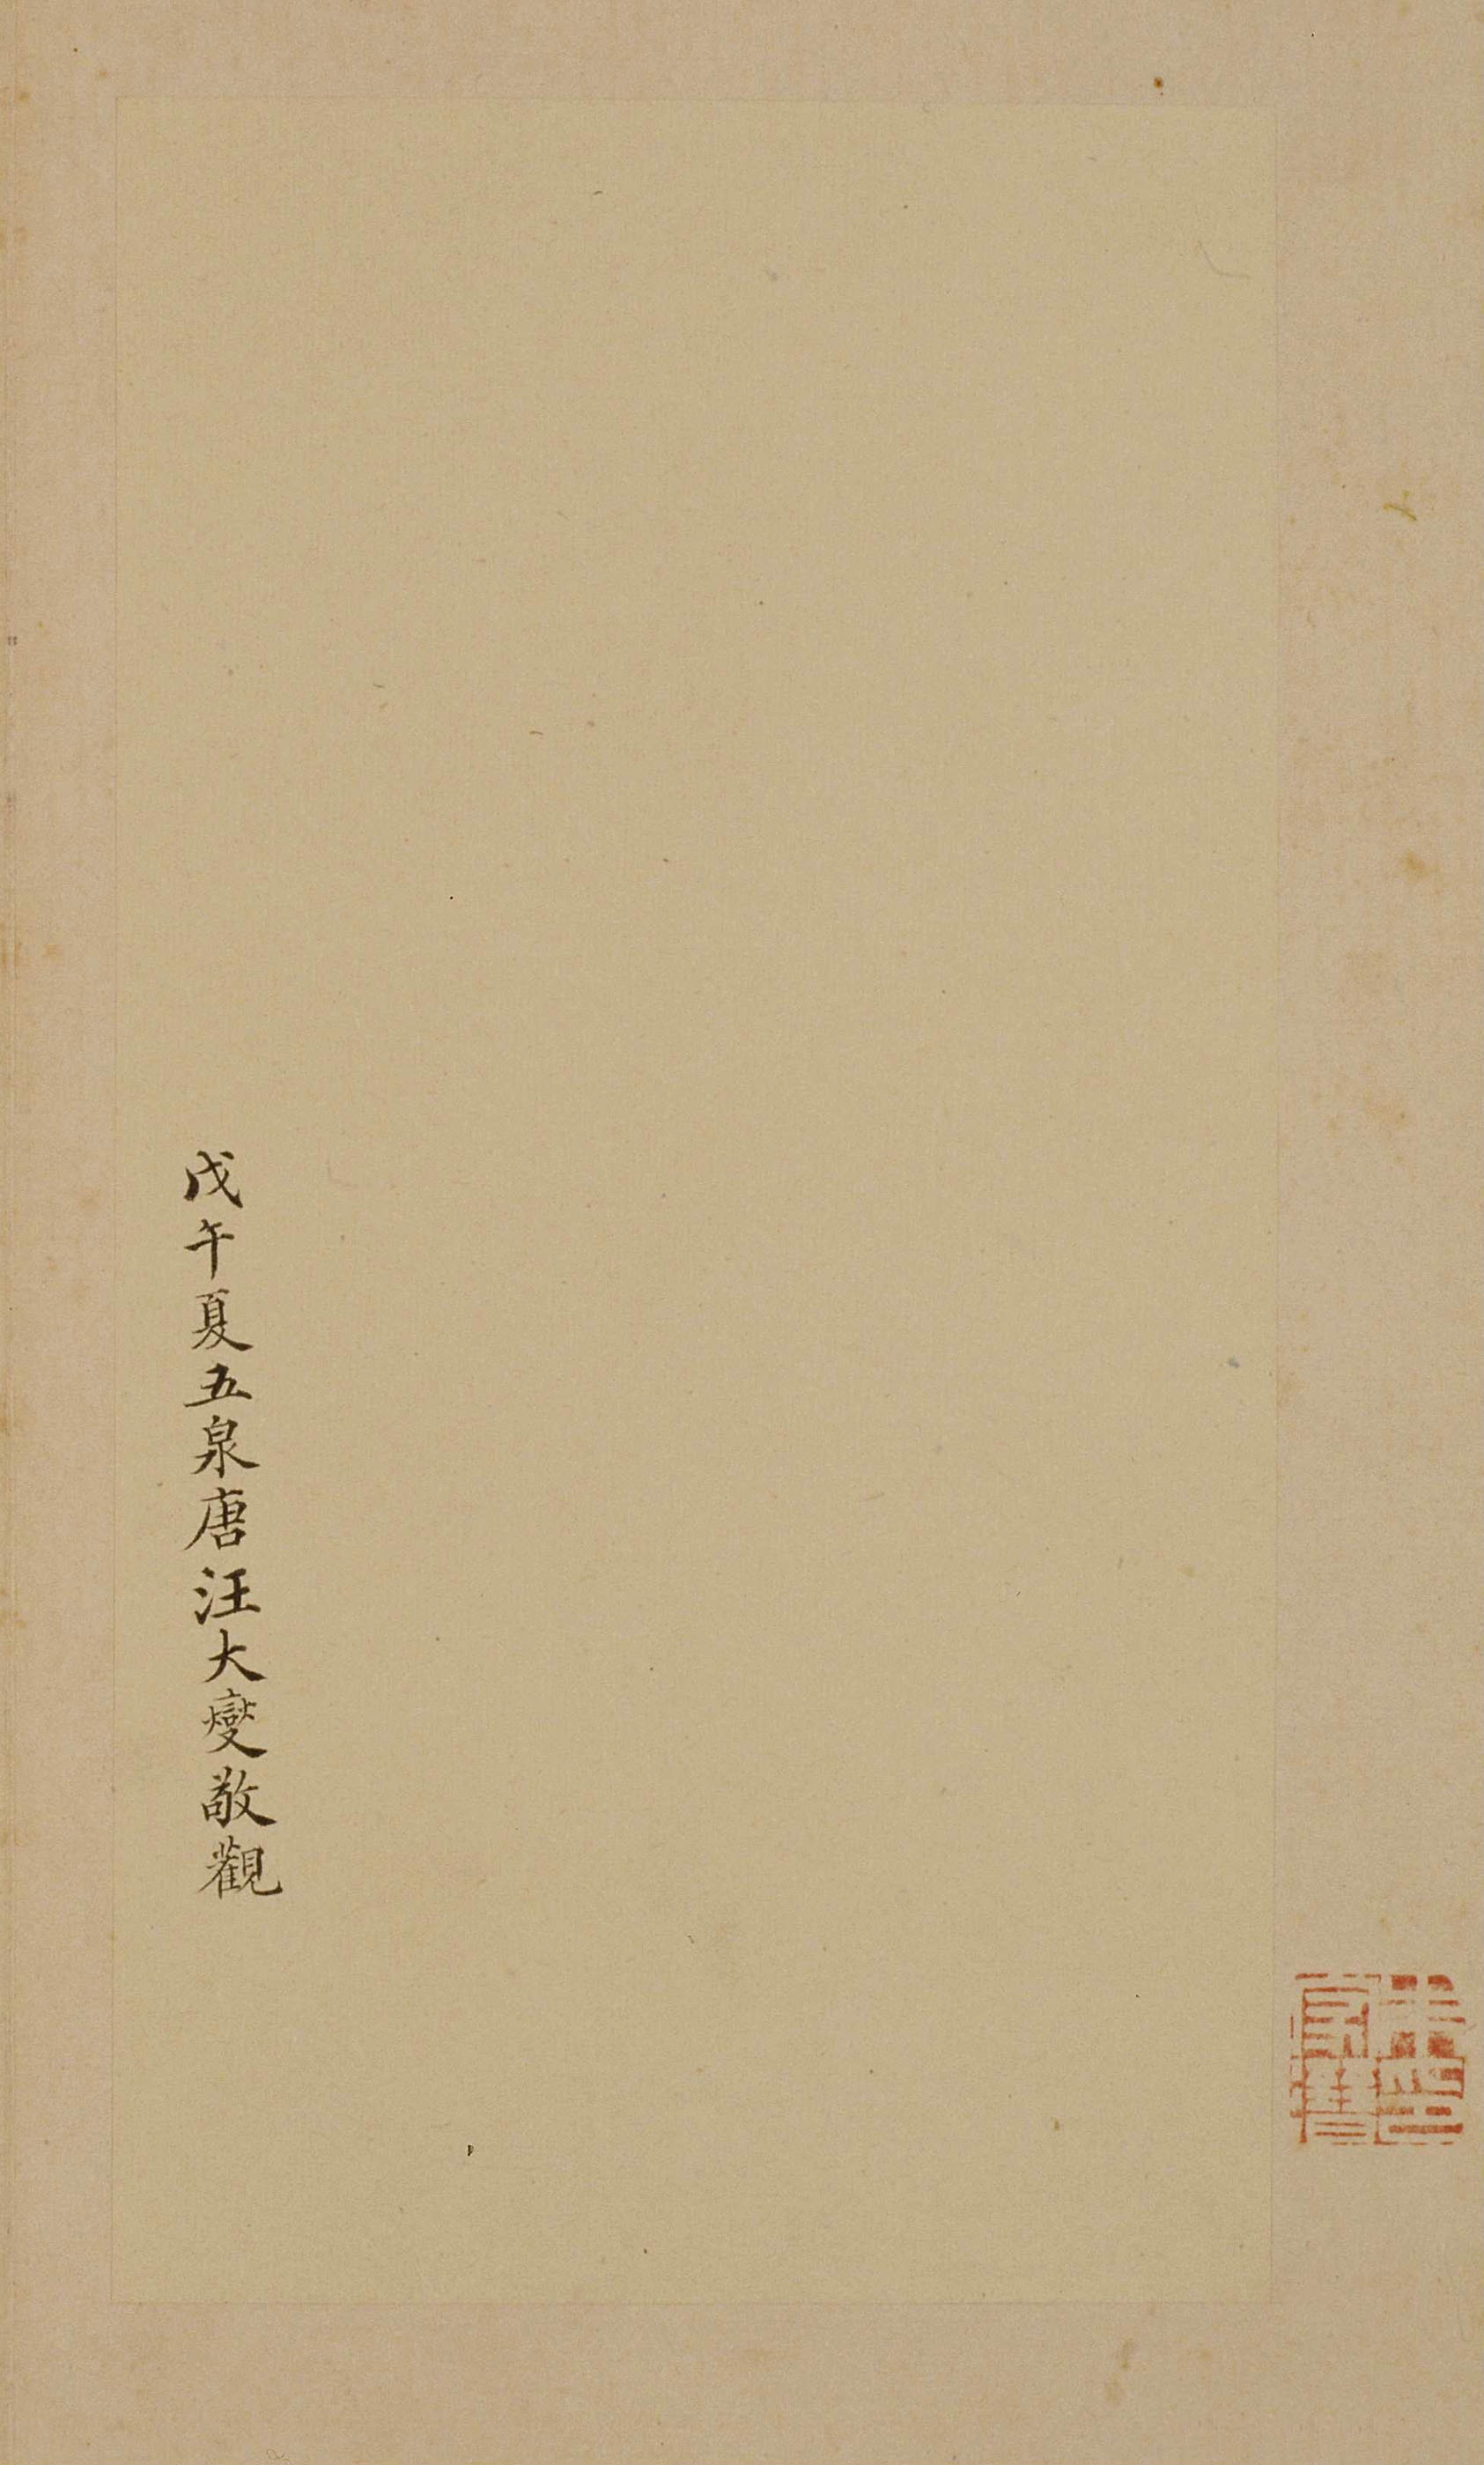 戊午夏五泉唐汪大燮敬觀